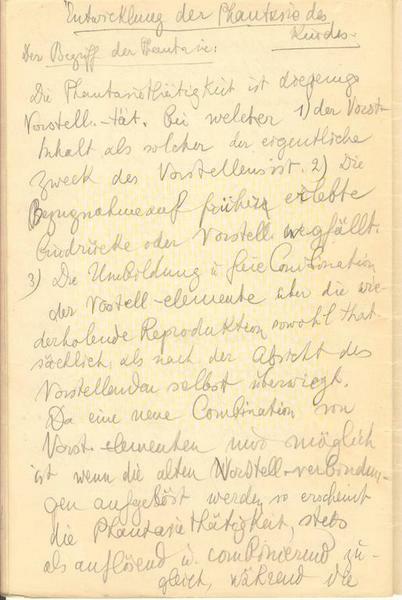 Entwicklung der Phantasie des
Kindes.
Der Begriff der Phantasie:
Die Phantasiethätigkeit ist diejenige
Vorstell.-tät. bei welcher 1) der Vorst-
Inhalt als solcher der eigentliche
Zweck des Vorstellens ist. 2) Die
Bezugnahme auf früher erlebte
Eindrücke oder Vorstell. wegfällt.
3) Die Umbildung u freie Combination
der Vostell-elemente über die wie-
derholende Reproduktion sowohl that-
sächlich, als nach der Absicht des
Vorstellenden selbst überwiegt.
Da eine neue Combination von
Vorst.-elementen nur möglich
ist wenn die alten Vorstell.-verbindun-
gen aufgelöst werden, so erscheint
die Phantasiethätigkeit, stets
als auflösend u. combinierend zu-
gleich, während die